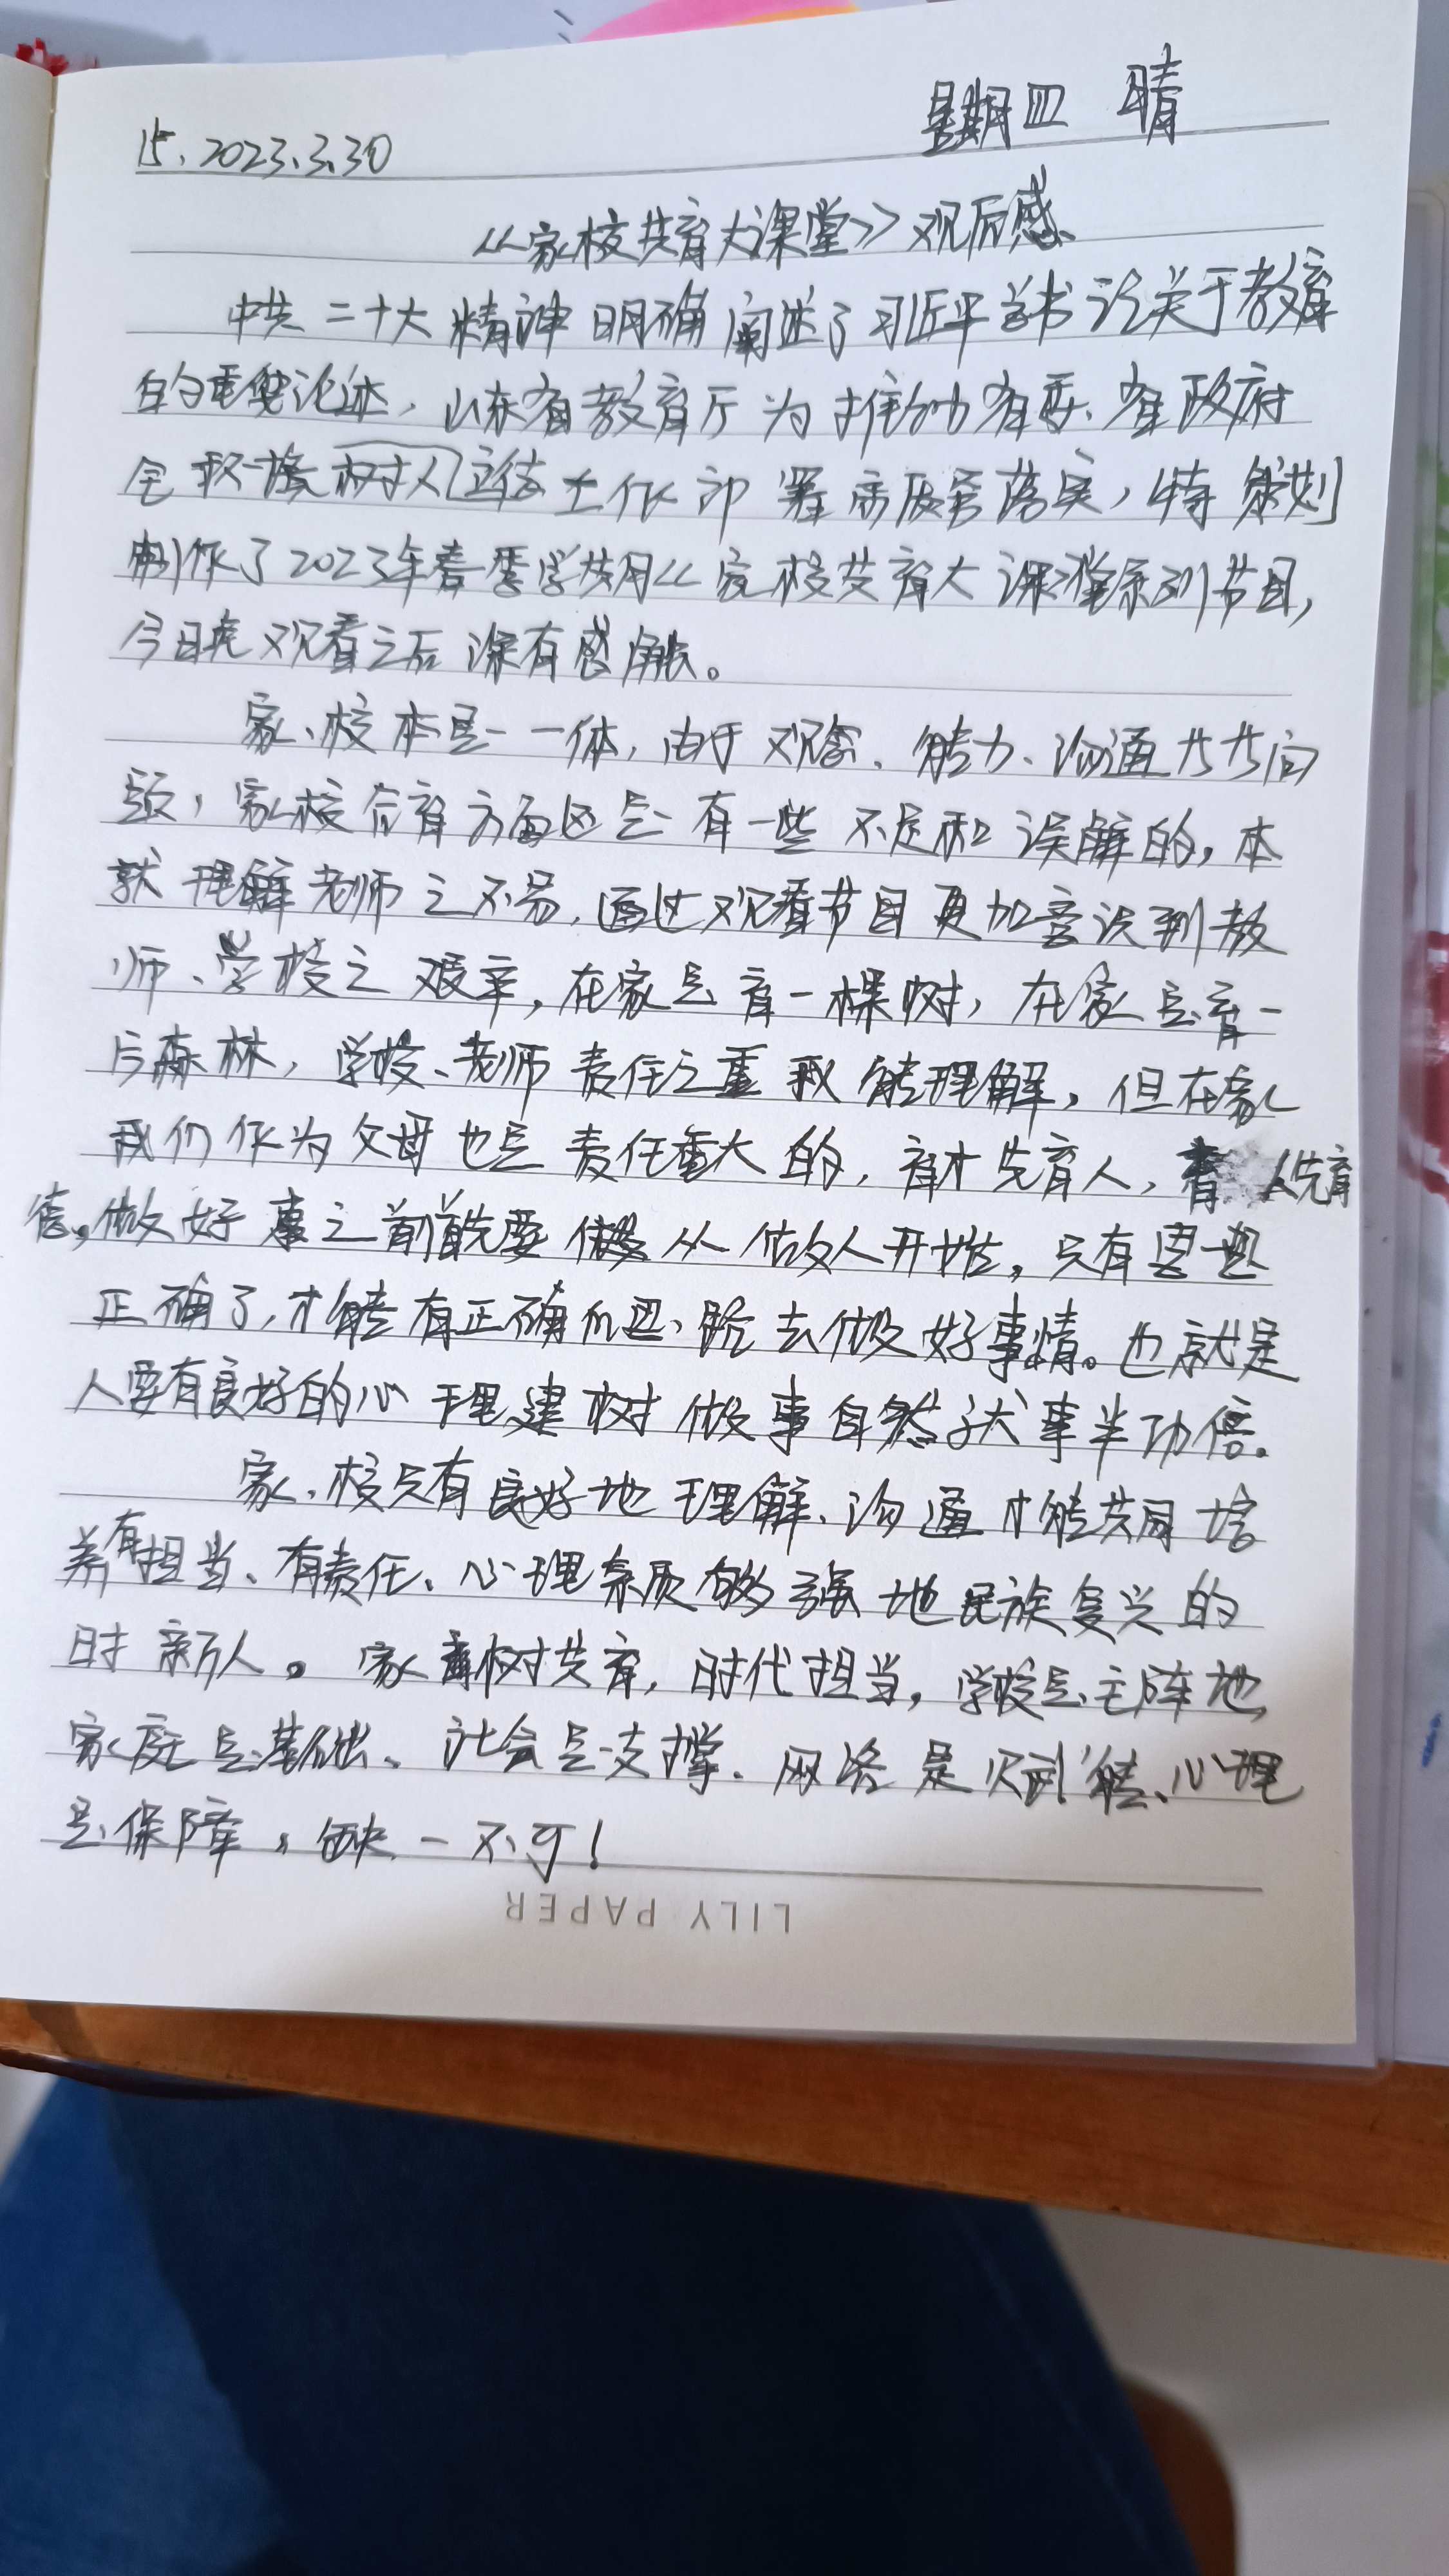 星期四 晴
15、2023.3.30
《家校共育大课堂》观后感
中共二十大精神明确阐述了习近平总书记关于教育
的重要论述，山东省教育厅为推动省委、省政府
树人立德工作部署落实，特策划
制作了2023年春季学期《家校共育大课堂系列节目，
今日晚观看之后深有感触。
家、校本是一体，由于观念、能力、沟通方方问
题，家校合育方面还是有一些不足和误解的，本
就理解老师之不易，通过观看节目更加意识到教
师、学校之艰辛，在家是育一棵树，在家是育一
片森林，学校、老师责任之重我能理解，但在家
我们作为父母也是责任重大的，育才先育人，育人先育
德。做好事之前首先要从做人开始。只有思想
正确了，才能有正确的思路去做好事情。也就是
人要有良好的心理建树做事自然事半功倍。
家、校只有良好地理解、沟通才能共同培
养有担当、有责任、心理素质够强地民族复兴的
时新人。家校共育，时代担当，学校是主阵地
家庭是基础、社会是支撑、网络是赋能、心理
是保障，缺一不可！
LILY PAPER